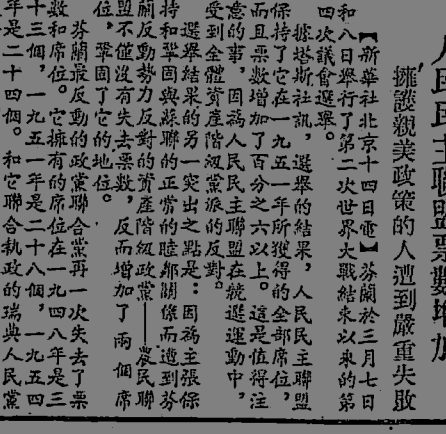 人民民主聯盟票數增加
擁護親美政策的人遭到嚴重失敗
【新華社北京十四日電】芬蘭於三月七日
和八日舉行了第二次世界大戰結束以來的第
四次議會選舉。
據塔斯社訊，選舉的結果，人民民主聯盟
保持了它在一九五一年所獲得的全部席位，
而且票數增加了百分之六以上。這是值得注
意的事，因爲人民民主聯盟在競選運動中，
受到全體資產階級黨派的反對。
選舉結果的另一突出之點是：因爲主張保
持和鞏固與蘇聯的正常的睦鄰關係而遭到芬
蘭反動勢力反對的資產階級政黨——農民聯
盟不僅沒有失去票數，反而增加了兩個席
位，鞏固了它的地位。
芬蘭最反動的政黨聯合黨再一次失去了票
數和席位。它擁有的席位在一九四八年是三
十三個，一九五一年是二十八個，一九五四
年是二十四個。和它聯合執政的瑞典人民黨